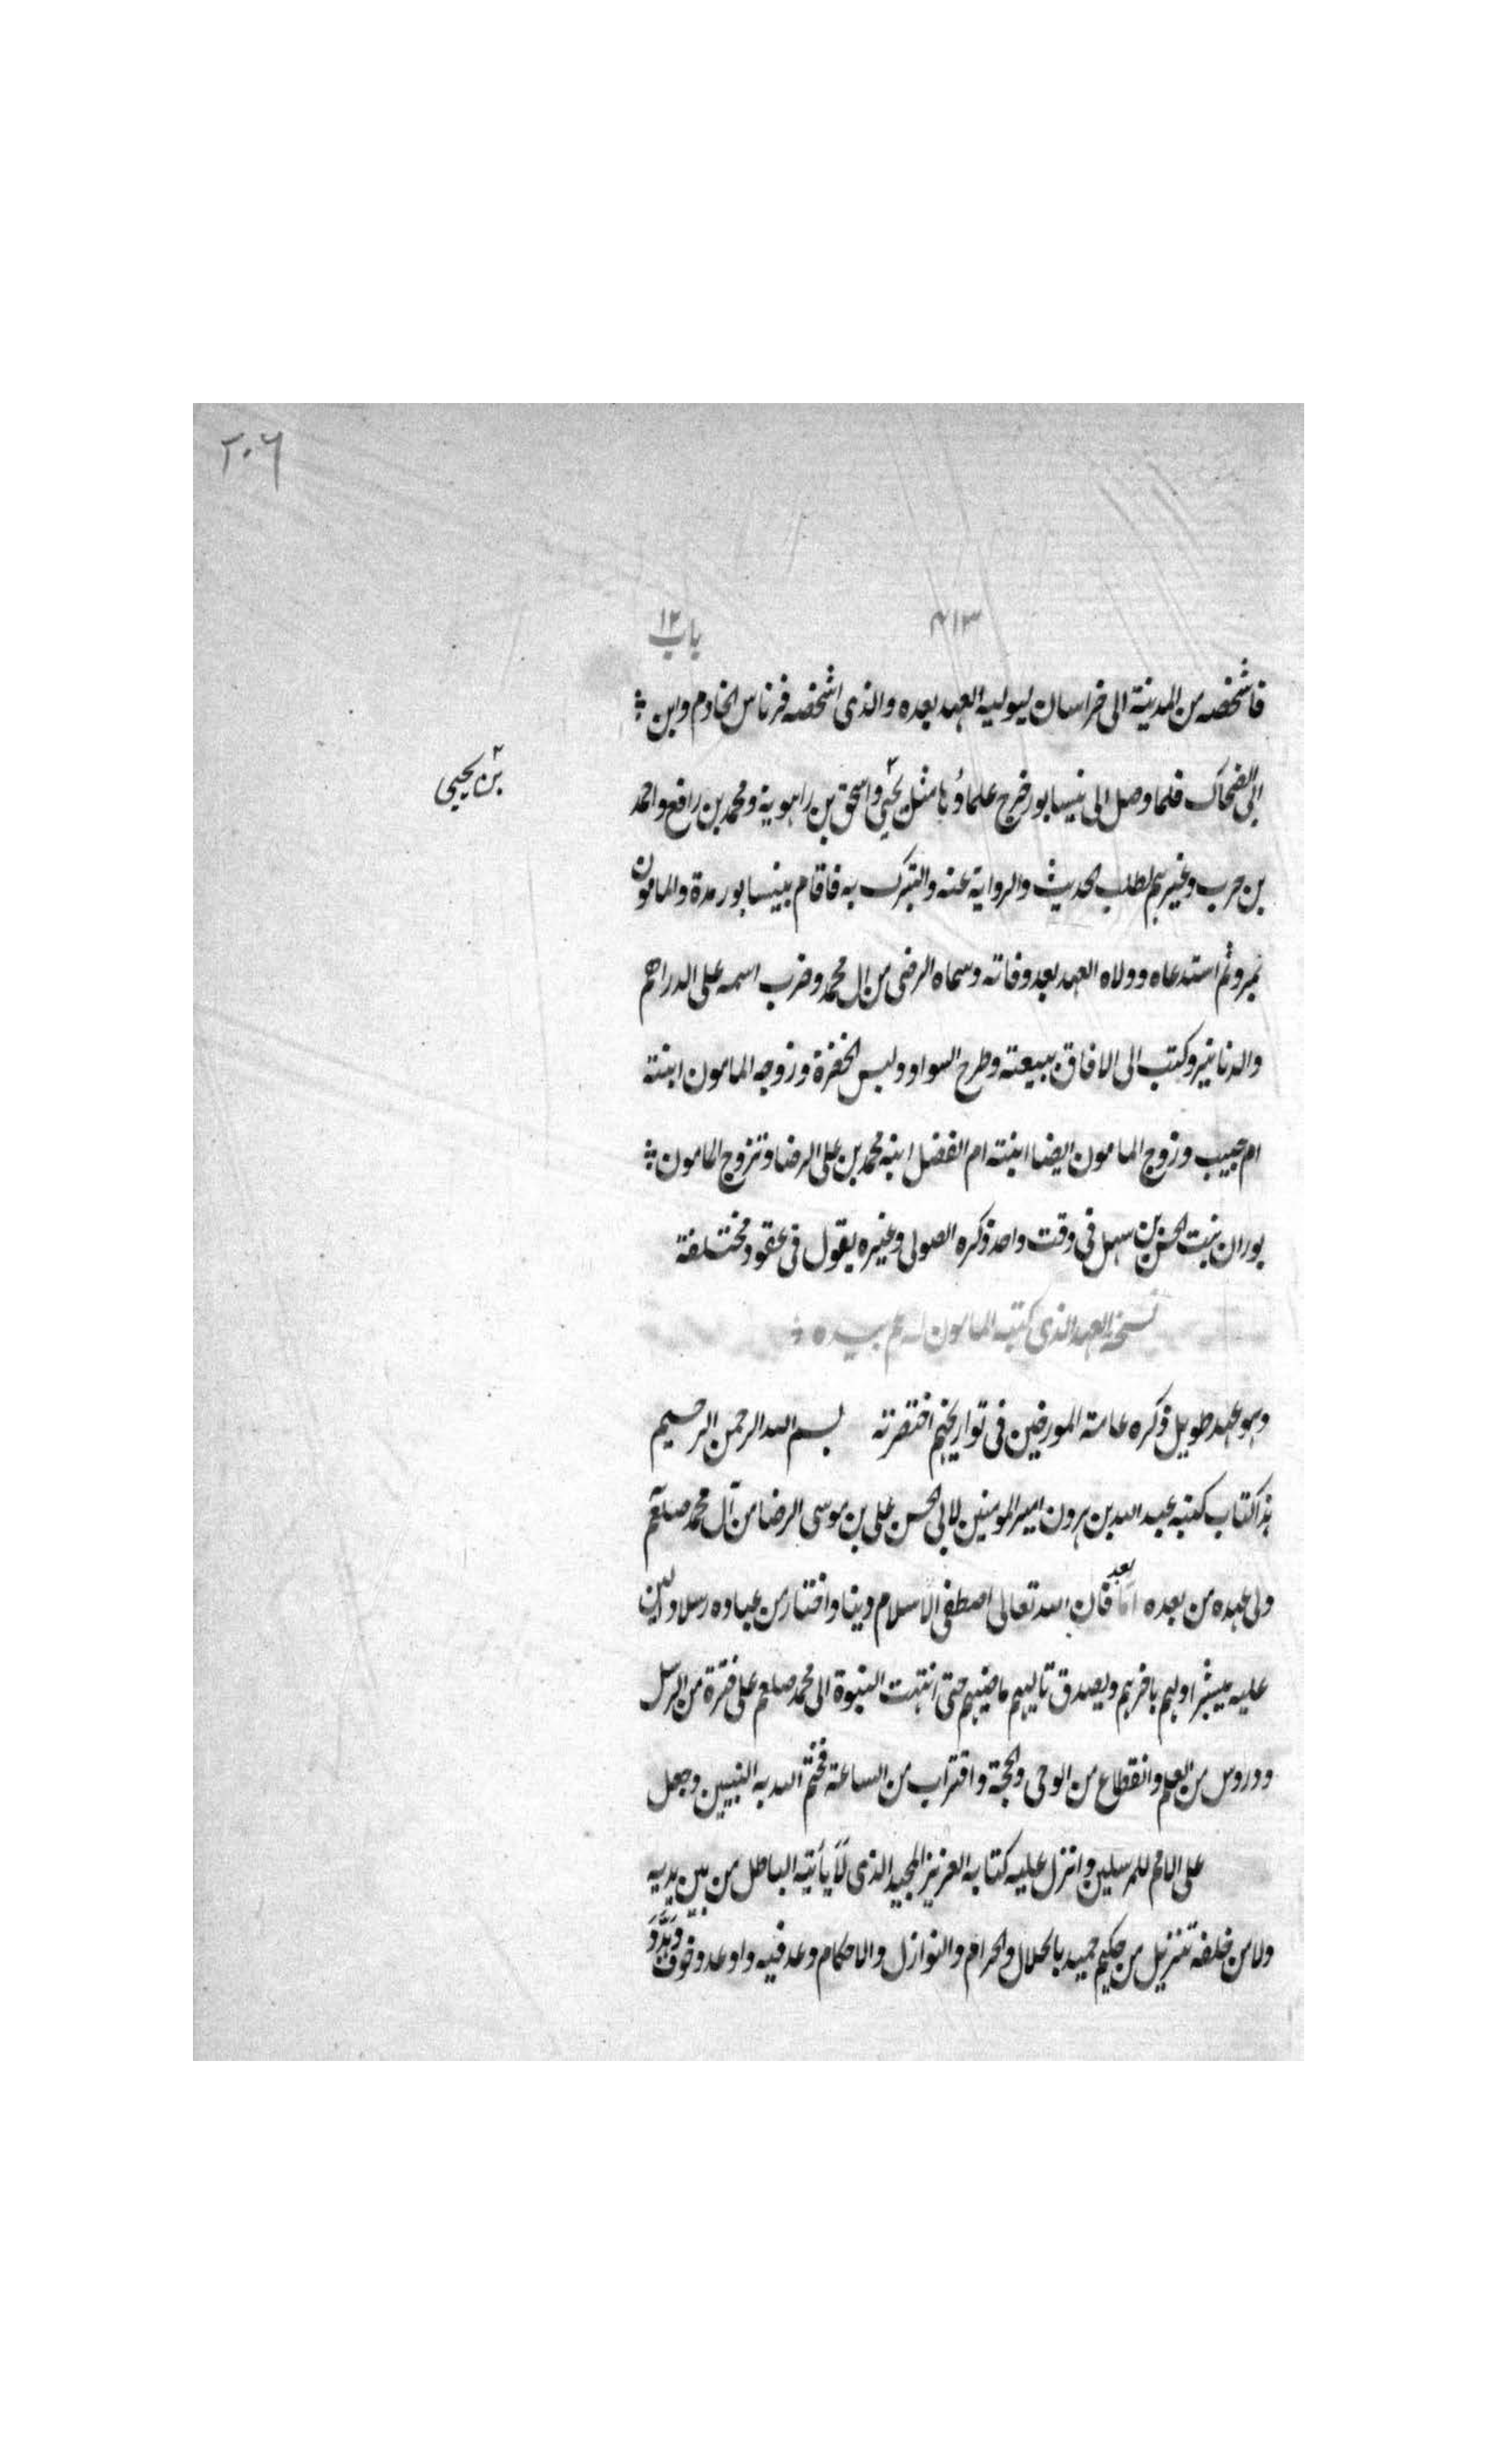 ٢٠٦
٤١٣
باب ١٢
فاشخصه من المدينة الى خراسان ليوليه العهد بعده والذى اشخصه فرناس الخادم وابن
ابى الضحاك فلما وصل الى نيسابور خرج علماؤها مثل يحيى ٢ واسحق بن راهوية ومحمد بن رافع واحمد
٢ بن يحيى
بن حرب وغيرهم لطلب الحديث والرواية عنه والتبرك به فاقام بنيسابور مدة والمامون
بمرو ثم استدعاه وولاه العهد بعد وفاته وسماه الرضى من ال محمد وضرب اسمه على الدراهم
والدنانير وكتب الى الافاق ببيعته وطرح السواد ولبس الخضرة وزوجه المامون ابنته
ام حبيب وزوج المامون ايضا ابنته ام الفضل ابنه محمد بن على الرضا وتزوج المامون
بوران بنت الحسن بن سهل فى وقت واحد ذكره الصولى وغيره يقول فى عقود مختلفة
نسخة العهد الذى كتبه المامون له عم بيده
وهو عهد طويل ذكره عامة المورخين فى تواريخهم اختصرته بسم الله الرحمن الرحيم
هذا كتاب كتبه عبد الله بن هرون امير المومنين لابى الحسن على بن موسى الرضا من آل محمد صلعم
ولى عهده من بعده اما بعد فان الله تعالى اصطفى الاسلام دينا واختار من عباده رسلا دالين
عليه يبشر اولهم باخرهم ويصدق تاليهم ماضيهم حتى انتهت النبوة الى محمد صلعم على فترة من الرسل
ودروس من العلم وانقطاع من الوحى والحجة واقتراب من الساعة فختم الله به النبيين وجعل
على الامم للمرسلين وانزل عليه كتابه العزيز المجيد الذى لا يأتيه الباطل من بين يديه
ولا من خلفه تنزيل من حكيم حميد بالحلال والحرام والنوازل والاحكام وعد فيه واوعد وخوف